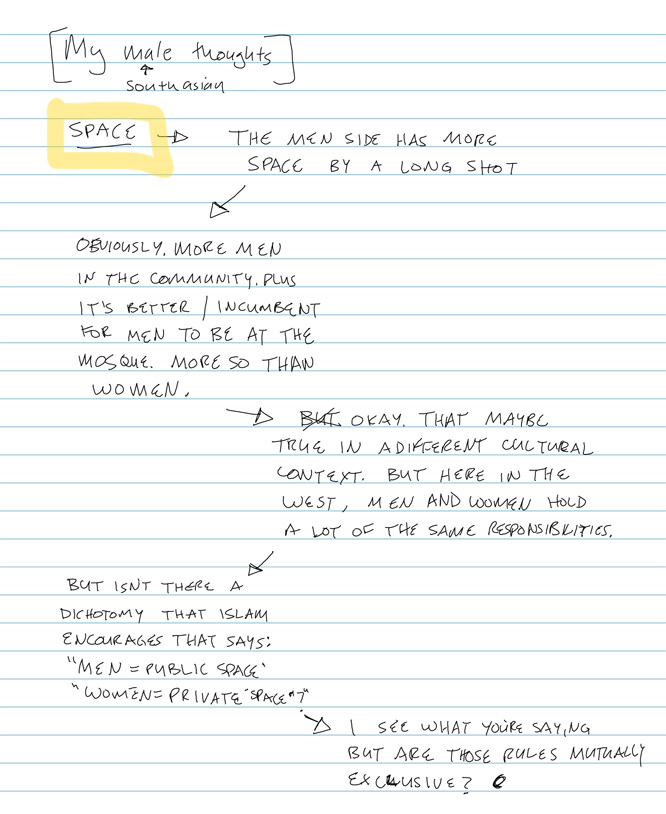 [My male thoughts]
southasian
SPACE → THE MEN SIDE HAS MORE
SPACE BY A LONG SHOT
OBVIOUSLY. MORE MEN
IN THE COMMUNITY. PLUS
IT'S BETTER / INCUMBENT
FOR MEN TO BE AT THE
MOSQUE. MORE SO THAN
WOMEN.
BUT OKAY. THAT MAYBE
TRUE IN A DIFFERENT CULTURAL
CONTEXT. BUT HERE IN THE
WEST, MEN AND WOMEN HOLD
A LOT OF THE SAME RESPONSIBILITIES.
BUT ISNT THERE A
DICHOTOMY THAT ISLAM
ENCOURAGES THAT SAYS:
"MEN = PUBLIC SPACE"
"WOMEN = PRIVATE "SPACE"?"
I SEE WHAT YOU'RE SAYING
BUT ARE THOSE RULES MUTUALLY
EXCLUSIVE?